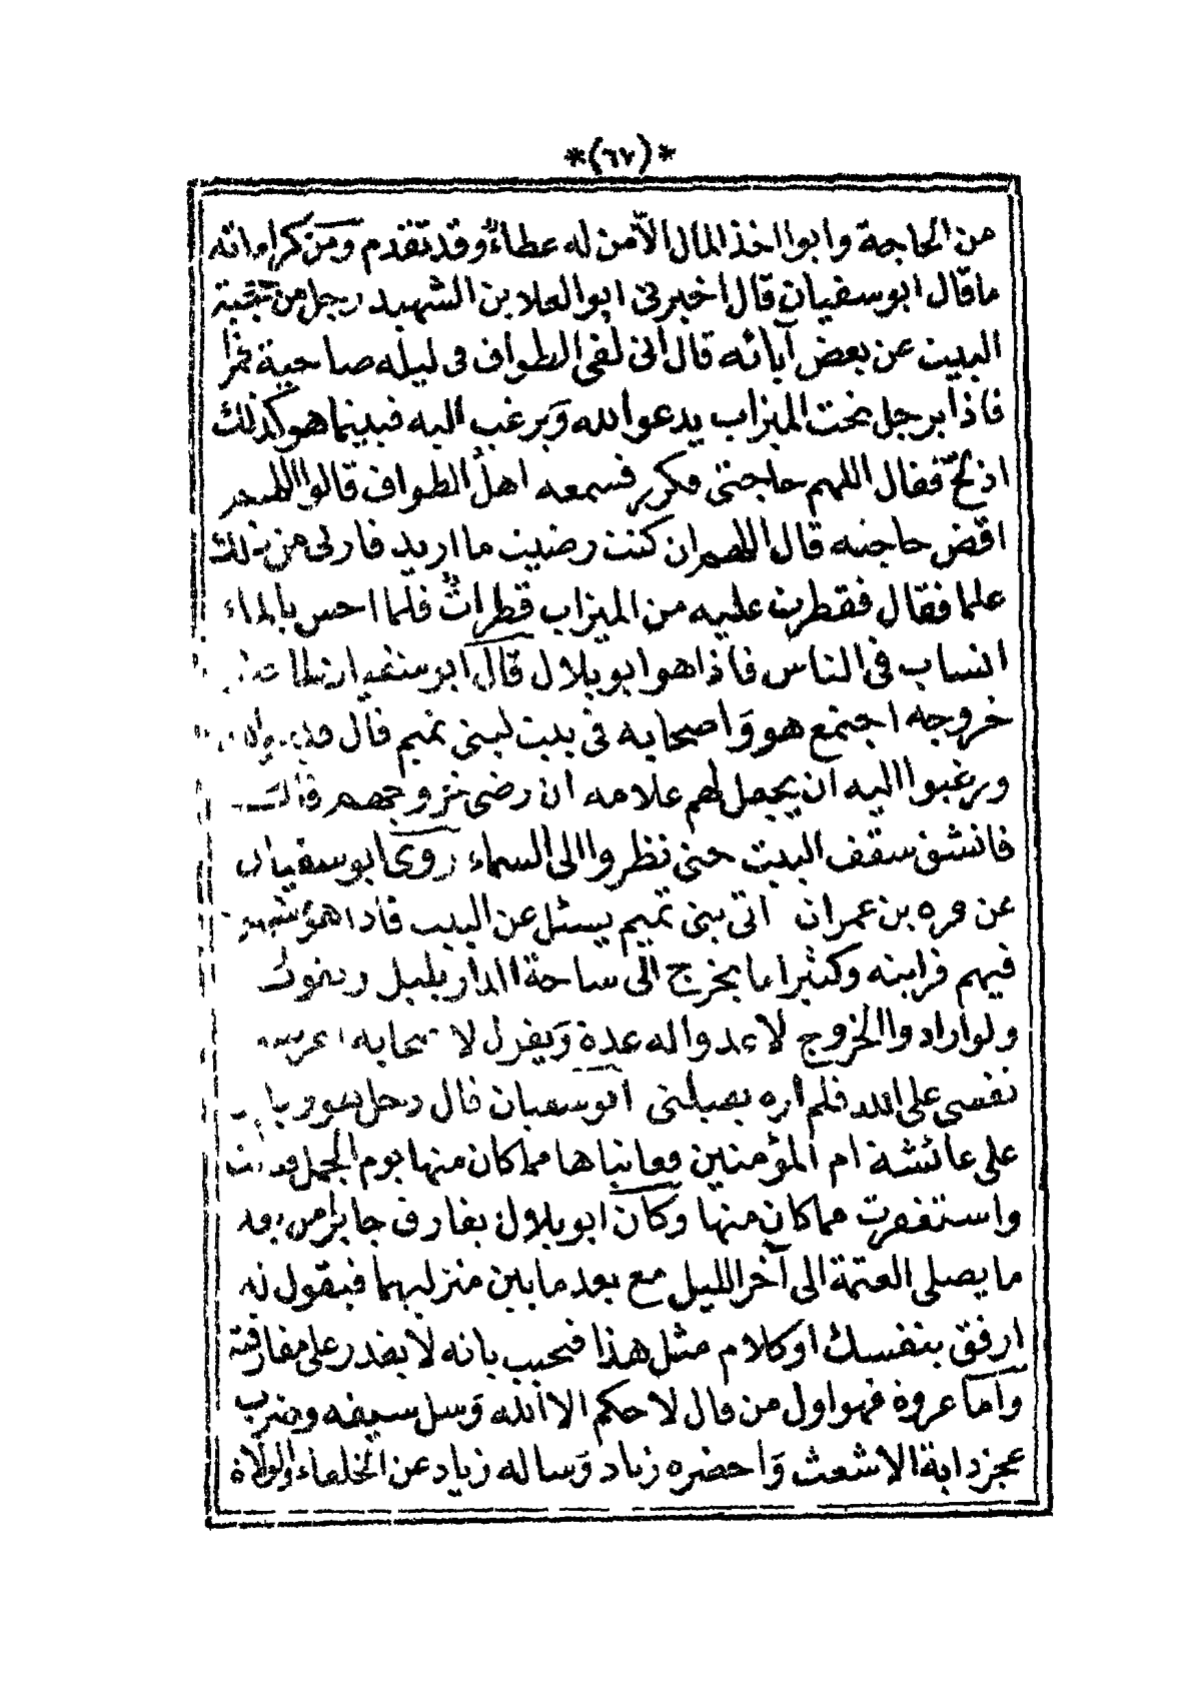 *(٦٧)*
من الحاجة وابوا اخذ المال الا من له عطاء وقد تقدم ومن كراماته
ما قال ابو سفيان قال اخبرني ابو العلا بن الشهيد رجل من حجبة
البيت عن بعض آبائه قال انى لفى الطواف فى ليله صاحية قمرا
فاذا برجل تحت الميزاب يدعو الله ويرغب اليه فبينما هو كذلك
اذ لحّ فقال اللهم حاجتى مكرر فسمعه اهل الطواف قالوا اللهم
اقض حاجته قال اللهم ان كنت رضيت ما اريد فارنى من ذلك
علما فقال فقطرت عليه من الميزاب قطرات فلما احس بالماء
انساب فى الناس فاذا هو ابو بلال قال ابو سفيان
خروجه اجتمع هو واصحابه فى بيت لبنى تميم قال
ورغبوا اليه ان يجعل لهم علامه ان رضى خروجهم قال
فانشق سقف البيت حتى نظروا الى السماء روى ابو سفيان
عن مره بن عمران اتى بنى تميم يسئل عن البيت فاذا هو
فيهم قرابته وكثيرا ما يخرج الى ساحة الدار بليل ويقول
ولو ارادوا الخروج لاعدوا له عدة ويقول لاصحابه
نفسى على الله فلم اره يصبلنى ابو سفيان قال دخل
على عائشة ام المؤمنين وعاتباها مما كان منها يوم الجمل
واستغفرت مما كان منها وكان ابو بلال يفارق جابرا من بعد
ما يصلى العتمة الى آخر الليل مع بعد ما بين منزليهما فيقول له
ارفق بنفسك او كلام مثل هذا فيجيب بانه لا يقدر على مفارقته
واما عروة فهو اول من قال لا حكم الا الله وسل سيفه وضرب
عجز دابة الاشعث واحضره زياد وساله زياد عن الخلفاء والولاة